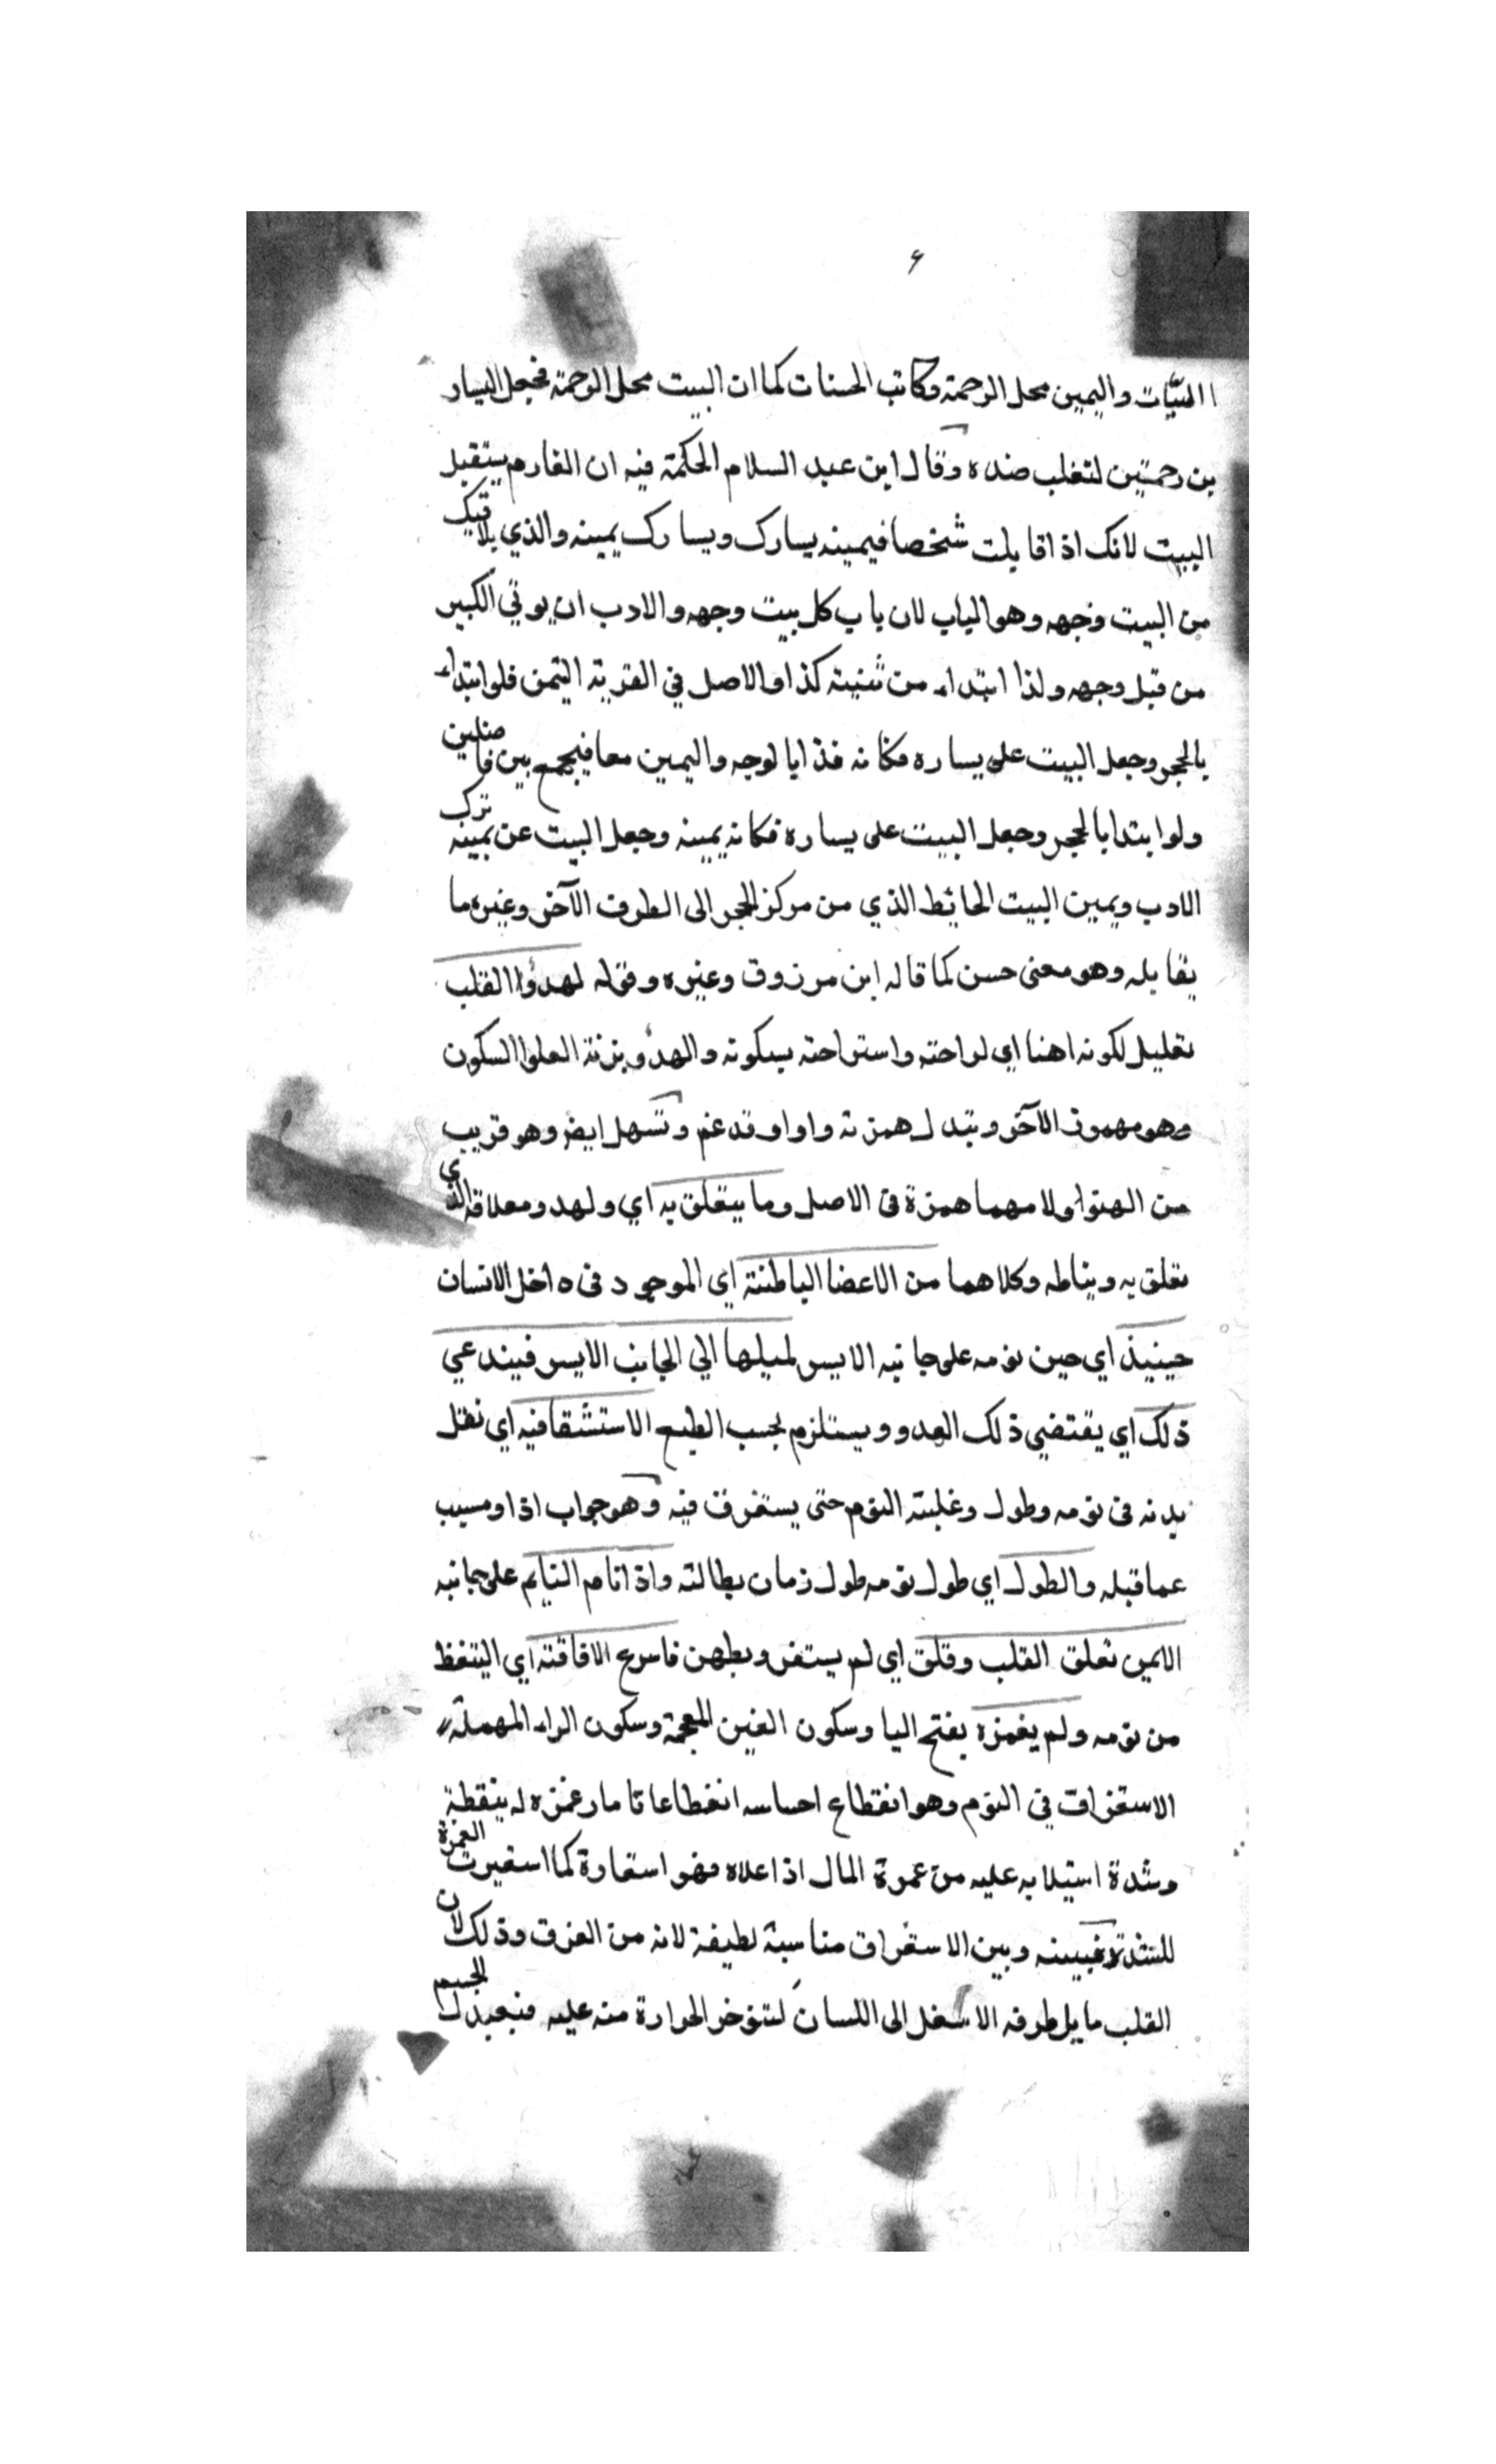 ٤
السيّآت واليمين محل الرحمة وكاتب الحسنات كما ان البيت محل الرحمة فجعل اليسار
بين رحمتين لتغلب ضده وقال ابن عبد السلام الحكمة فيه ان القادم يستقبل
البيت لانك اذا قابلت شخصا فيمينه يسارك ويسارك يمينه والذي يلاقيك
من البيت وجهه وهو الباب لان باب كل بيت وجهه والادب ان يوتي الكبير
من قبل وجهه ولذا ابتداء من ثنية كذا والاصل في القربة التيمن فلو ابتداء
بالحجر وجعل البيت على يساره فكانه الوجه واليمين معا فيجمع بين فاضلين
ولو ابتدا بالحجر وجعل البيت على يساره فكانه يمينه وجعل البيت عن يمينه ترك
الادب ويمين البيت الحائط الذي من مركز الحجر الى الطرف الآخر وغيره ما
يقابله وهو معنى حسن كما قاله ابن مرزوق وغيره وقوله لهدؤا القلب
تعليل لكونه اهنا اي لراحته واستراحته بسكونه والهدؤ بزنة العلو السكون
وهو مهموز الآخر وتبدل همزته واوا وتدغم وتسهل ايضا وهو قريب
من ولامهما همزة في الاصل وما يتعلق به اي ولهدو معلاقه الذي
تعلق به ويناطه وكلاهما من الاعضا الباطنة اي الموجود في داخل الانسان
حينيذ اي حين نومه على جانبه الايسر لميلها الي الجانب الايسر فيندعي
ذلك اي يقتضي ذلك الهدو ويستلزم بحسب الطبع الاستثقا فيه اي نقل
بدنه في نومه وطول وغلبة النوم حتى يستغرق فيه وهو جواب اذا ومسبب
عما قبله والطول اي طول نومه طول زمان بطالته واذا نام النايم على جانبه
الايمن تعلق القلب وقلق اي لم يستقر ويطمن فاسرع الافاقة اي التيقظ
من نومه ولم يغمزه بفتح اليا وسكون الغين المعجمة وسكون الراء المهملة
الاستغراق في النوم وهو انقطاع احساسه انقطاعا تاما
وشدة استيلا به عليه من غمرة المال اذا علاه فهو استعارة كما استعيرت الغمرة
للشدة فبينه وبين الاستغراق مناسبة لطيفة لانه من الغرق وذلك لان
القلب مايل طرفه الاسفل الى اللسان لتتوفر الحرارة منه عليه فيعبدل الجسم